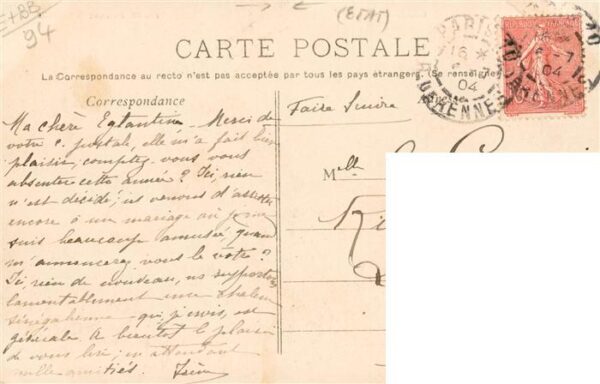 E+BB
94
(ETAT)
CARTE POSTALE
La Correspondance au recto n'est pas acceptée par tous les pays étrangers. (Se renseigner
Correspondance
Faire Suivre
PARIS
16
04
CAYENNES
Ma chère Eglantine. Merci de
votre c. postale, elle m'a fait bien
plaisir, comptez-vous vous
absenter cette année? Ici, rien
n'est décidé; ns venons d'assister
encore à un mariage où je me
suis beaucoup amusée, quand
m'annoncerez vous le vôtre?
Ici, rien de nouveau, ns supportons
lamentablement une chaleur
sénégalienne qui, je crois, est
générale. A bientôt le plaisir
de vous lire; en attendant
mille amitiés.
Mlle